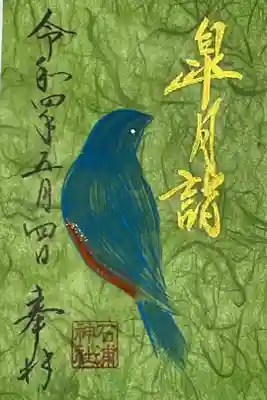 皐月詣
奉拝
令和四年五月四日
石浦
神社